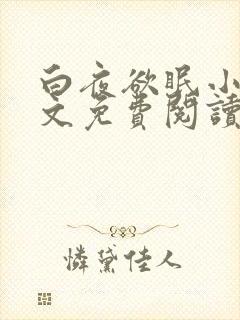 白夜欲眠小
文免費閱讀
憐黛佳人